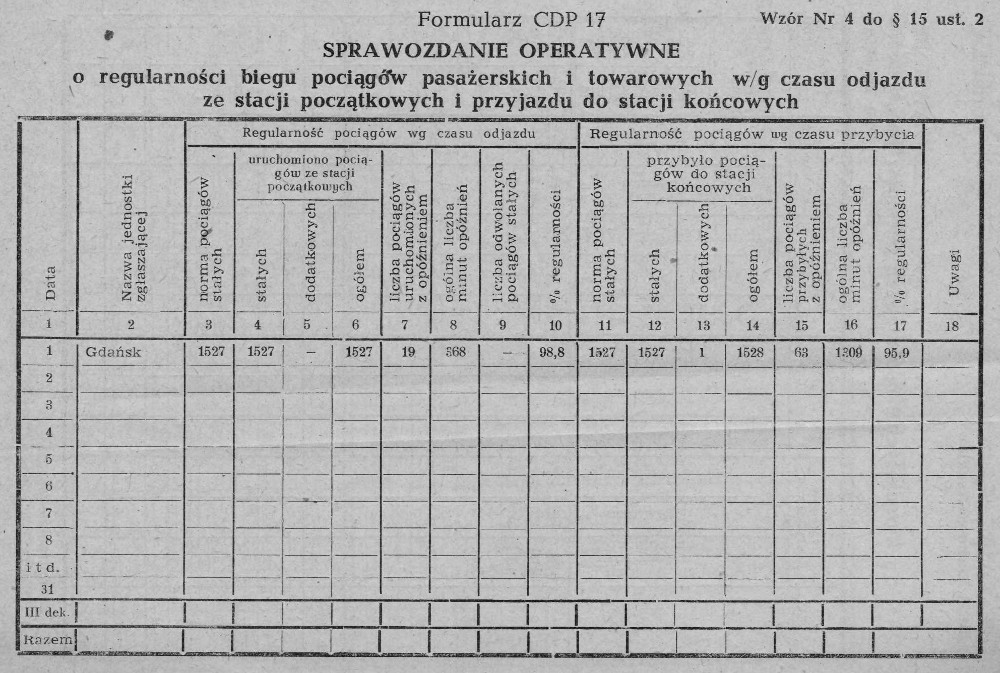 Formularz CDP 17
Wzór Nr 4 do § 15 ust. 2
SPRAWOZDANIE OPERATYWNE
o regularności biegu pociągów pasażerskich i towarowych w/g czasu odjazdu
ze stacji początkowych i przyjazdu do stacji końcowych
Data
Nazwa jednostki
zgłaszającej
Regularność pociągów wg czasu odjazdu
norma pociągów
stałych
uruchomiono pocią-
gów ze stacji
początkowych
stałych
dodatkowych
ogółem
liczba pociągów
uruchomionych
z opóźnieniem
ogólna liczba
minut opóźnień
liczba odwołanych
pociągów stałych
% regularności
Regularność pociągów wg czasu przybycia
norma pociągów
stałych
przybyło pocią-
gów do stacji
końcowych
stałych
dodatkowych
ogółem
liczba pociągów
przybyłych
z opóźnieniem
ogólna liczba
minut opóźnień
% regularności
Uwagi
1 2 3 4 5 6 7 8 9 10 11 12 13 14 15 16 17 18
1 Gdańsk 1527 1527 — 1527 19 368 — 98,8 1527 1527 1 1528 63 1309 95,9
2
3
4
5
6
7
8
i t d.
31
III dek.
Razem